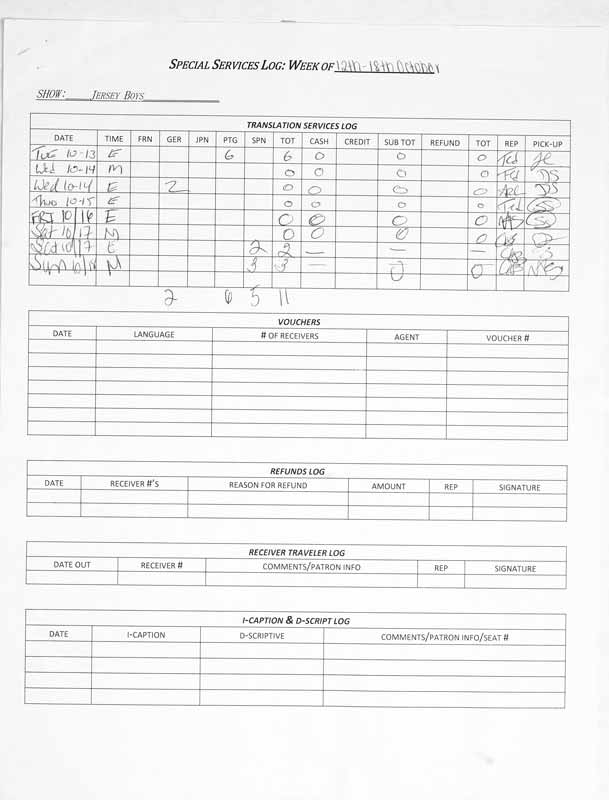 SPECIAL SERVICES LOG: WEEK OF 12th-18th October
SHOW: JERSEY BOYS
TRANSLATION SERVICES LOG
DATE TIME FRN GER JPN PTG SPN TOT CASH CREDIT SUB TOT REFUND TOT REP PICK-UP
Tue 10-13 E 6 6 0 0 0 Ted JC
Wed 10-14 M 0 0 0 0 DS
Wed 10-14 E 2 0 0 0 0 DS
Thu 10-15 E 0 0 0 0 Ted SS
FRI 10/16 E 0 0 0 0
Sat 10/17 M 0 0 0 0
Sat 10/17 E 2 2 — — —
Sun 10/18 M 3 3 — 0 0
2 6 5 11
VOUCHERS
DATE LANGUAGE # OF RECEIVERS AGENT VOUCHER #
REFUNDS LOG
DATE RECEIVER #'S REASON FOR REFUND AMOUNT REP SIGNATURE
RECEIVER TRAVELER LOG
DATE OUT RECEIVER # COMMENTS/PATRON INFO REP SIGNATURE
I-CAPTION & D-SCRIPT LOG
DATE I-CAPTION D-SCRIPTIVE COMMENTS/PATRON INFO/SEAT #